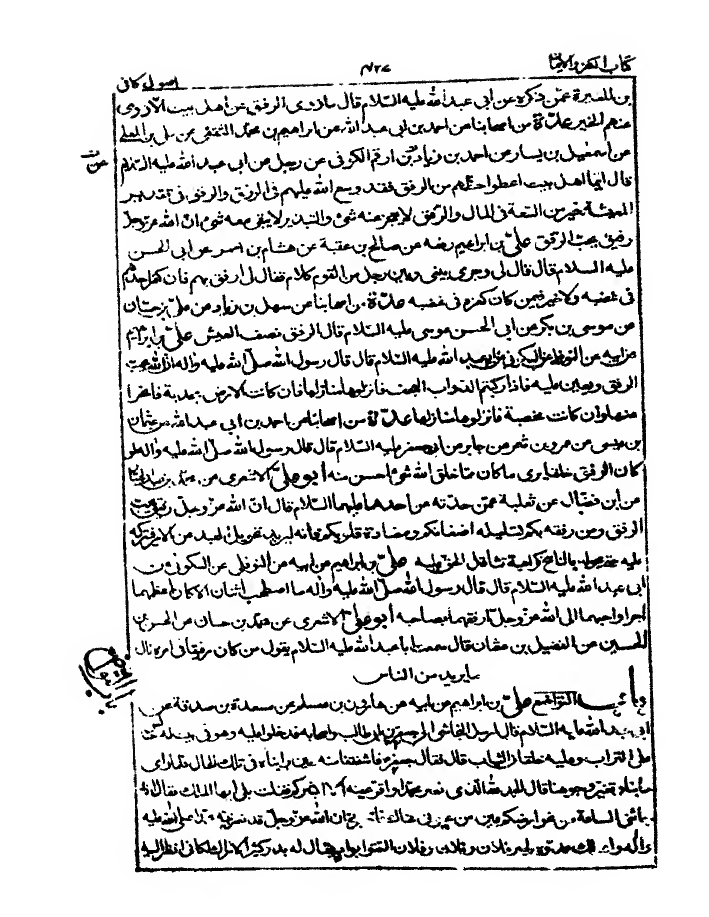 كتاب الكفر والايمان ٤٢٧ اصول كافى
بن المغيرة عمّن ذكره عن ابى عبد الله عليه السّلام قال ما زوى الرفق عن اهل بيت الّا زوى
عنهم الخير عدّة من اصحابنا من احمد بن ابى عبد الله عن ابراهيم بن محمّد الثقفى عن على بن المعلّى
عن اسمعيل بن يسار عن احمد بن زياد بن ارقم الكوفى عن رجل عن ابى عبد الله عليه السّلم
قال ايّما اهل بيت اعطوا حظّهم من الرفق فقد وسع الله عليهم فى الرزق والرفق فى تقدير
المعيشة خير من السّعة فى المال والرّفق لا يعجز عنه شئ والتبذير لا يبقى معه شئ انّ الله عزّ وجل
رفيق يحبّ الرفق علىّ بن ابراهيم رفعه عن صالح بن عقبة عن هشام بن احمر عن ابى الحسن
عليه السلام قال قال لى وجرى بينى وبين رجل من القوم كلام فقال لى ارفق بهم فان كفر احدهم
فى غضبه ولا خير فيمن كان كفره فى غضبه عدّة من اصحابنا عن سهل بن زياد عن علىّ بن حسّان
عن موسى بن بكر عن ابى الحسن موسى عليه السّلام قال الرفق نصف العيش علىّ بن ابراهيم
عن ابيه عن النوفلى عن السكونى عن ابى عبد الله عليه السّلام قال قال رسول الله صلّى الله عليه واله انّ الله يحبّ
الرفق ويعين عليه فاذا ركبتم الدواب العجف فانزلوها منازلها فان كانت الارض مجدبة فانجوا
عنها وان كانت مخصبة فانزلوها منازلها عدّة من اصحابنا عن احمد بن ابى عبد الله عن عثمان
بن عيسى عن عمرو بن شمر عن جابر عن ابى جعفر عليه السّلام قال قال رسول الله صلّى الله عليه واله لو
كان الرفق خلقا يرى ما كان ممّا خلق الله شئ احسن منه ابو علىّ الاشعرى عن محمّد بن عبد الجبّار
عن ابن فضّال عن ثعلبة عمّن حدّثه عن احدهما عليهما السّلام قال انّ الله عزّ وجلّ رفيق يحبّ
الرفق ومن رفقه بكم تسليله اضغانكم ومضادة قلوبكم وانه ليريد تحويل العبد عن الامر فيتركه
عليه حتى يحوله بالناسخ كراهية تثاقل الحق عليه علىّ بن ابراهيم عن ابيه عن النوفلى عن السكونى عن
ابى عبد الله عليه السّلام قال قال رسول الله صلّى الله عليه واله ما اصطحب اثنان الّا كان اعظمهما
اجرا واحبهما الى الله عزّ وجلّ ارفقهما بصاحبه ابو علىّ الاشعرى عن محمّد بن حسان عن الحسن بن
الحسين عن الفضيل بن عثمان قال سمعت ابا عبد الله عليه السّلام يقول من كان رفيقا فى امره نال
ما يريد من الناس
باب التواضع علىّ بن ابراهيم عن ابيه عن هارون بن مسلم عن مسعدة بن صدقة عن
ابى عبد الله عليه السّلام قال ارسل النجاشى الى جعفر بن ابى طالب واصحابه فدخلوا عليه وهو فى بيت له
على التراب وعليه خلقان الثياب قال فقال جعفر فاشفقنا منه حين رايناه فى تلك الحال فلمّا راى
ما بنا وتغيّر وجوهنا قال الحمد لله الذى نصر محمّدا واقرّ عينه الا ابشركم فقلت بلى ايها الملك فقال انّه
جائنى الساعة من نحو ارضكم عين من عيونى هناك فاخبرنى انّ الله عزّ وجلّ قد نصر نبيّه محمّدا صلّى الله عليه
واله واهلك عدوّه واسر فلان وفلان وفلان التقوا بواد يقال له بدر كثير الاراك لكانّى انظر اليه